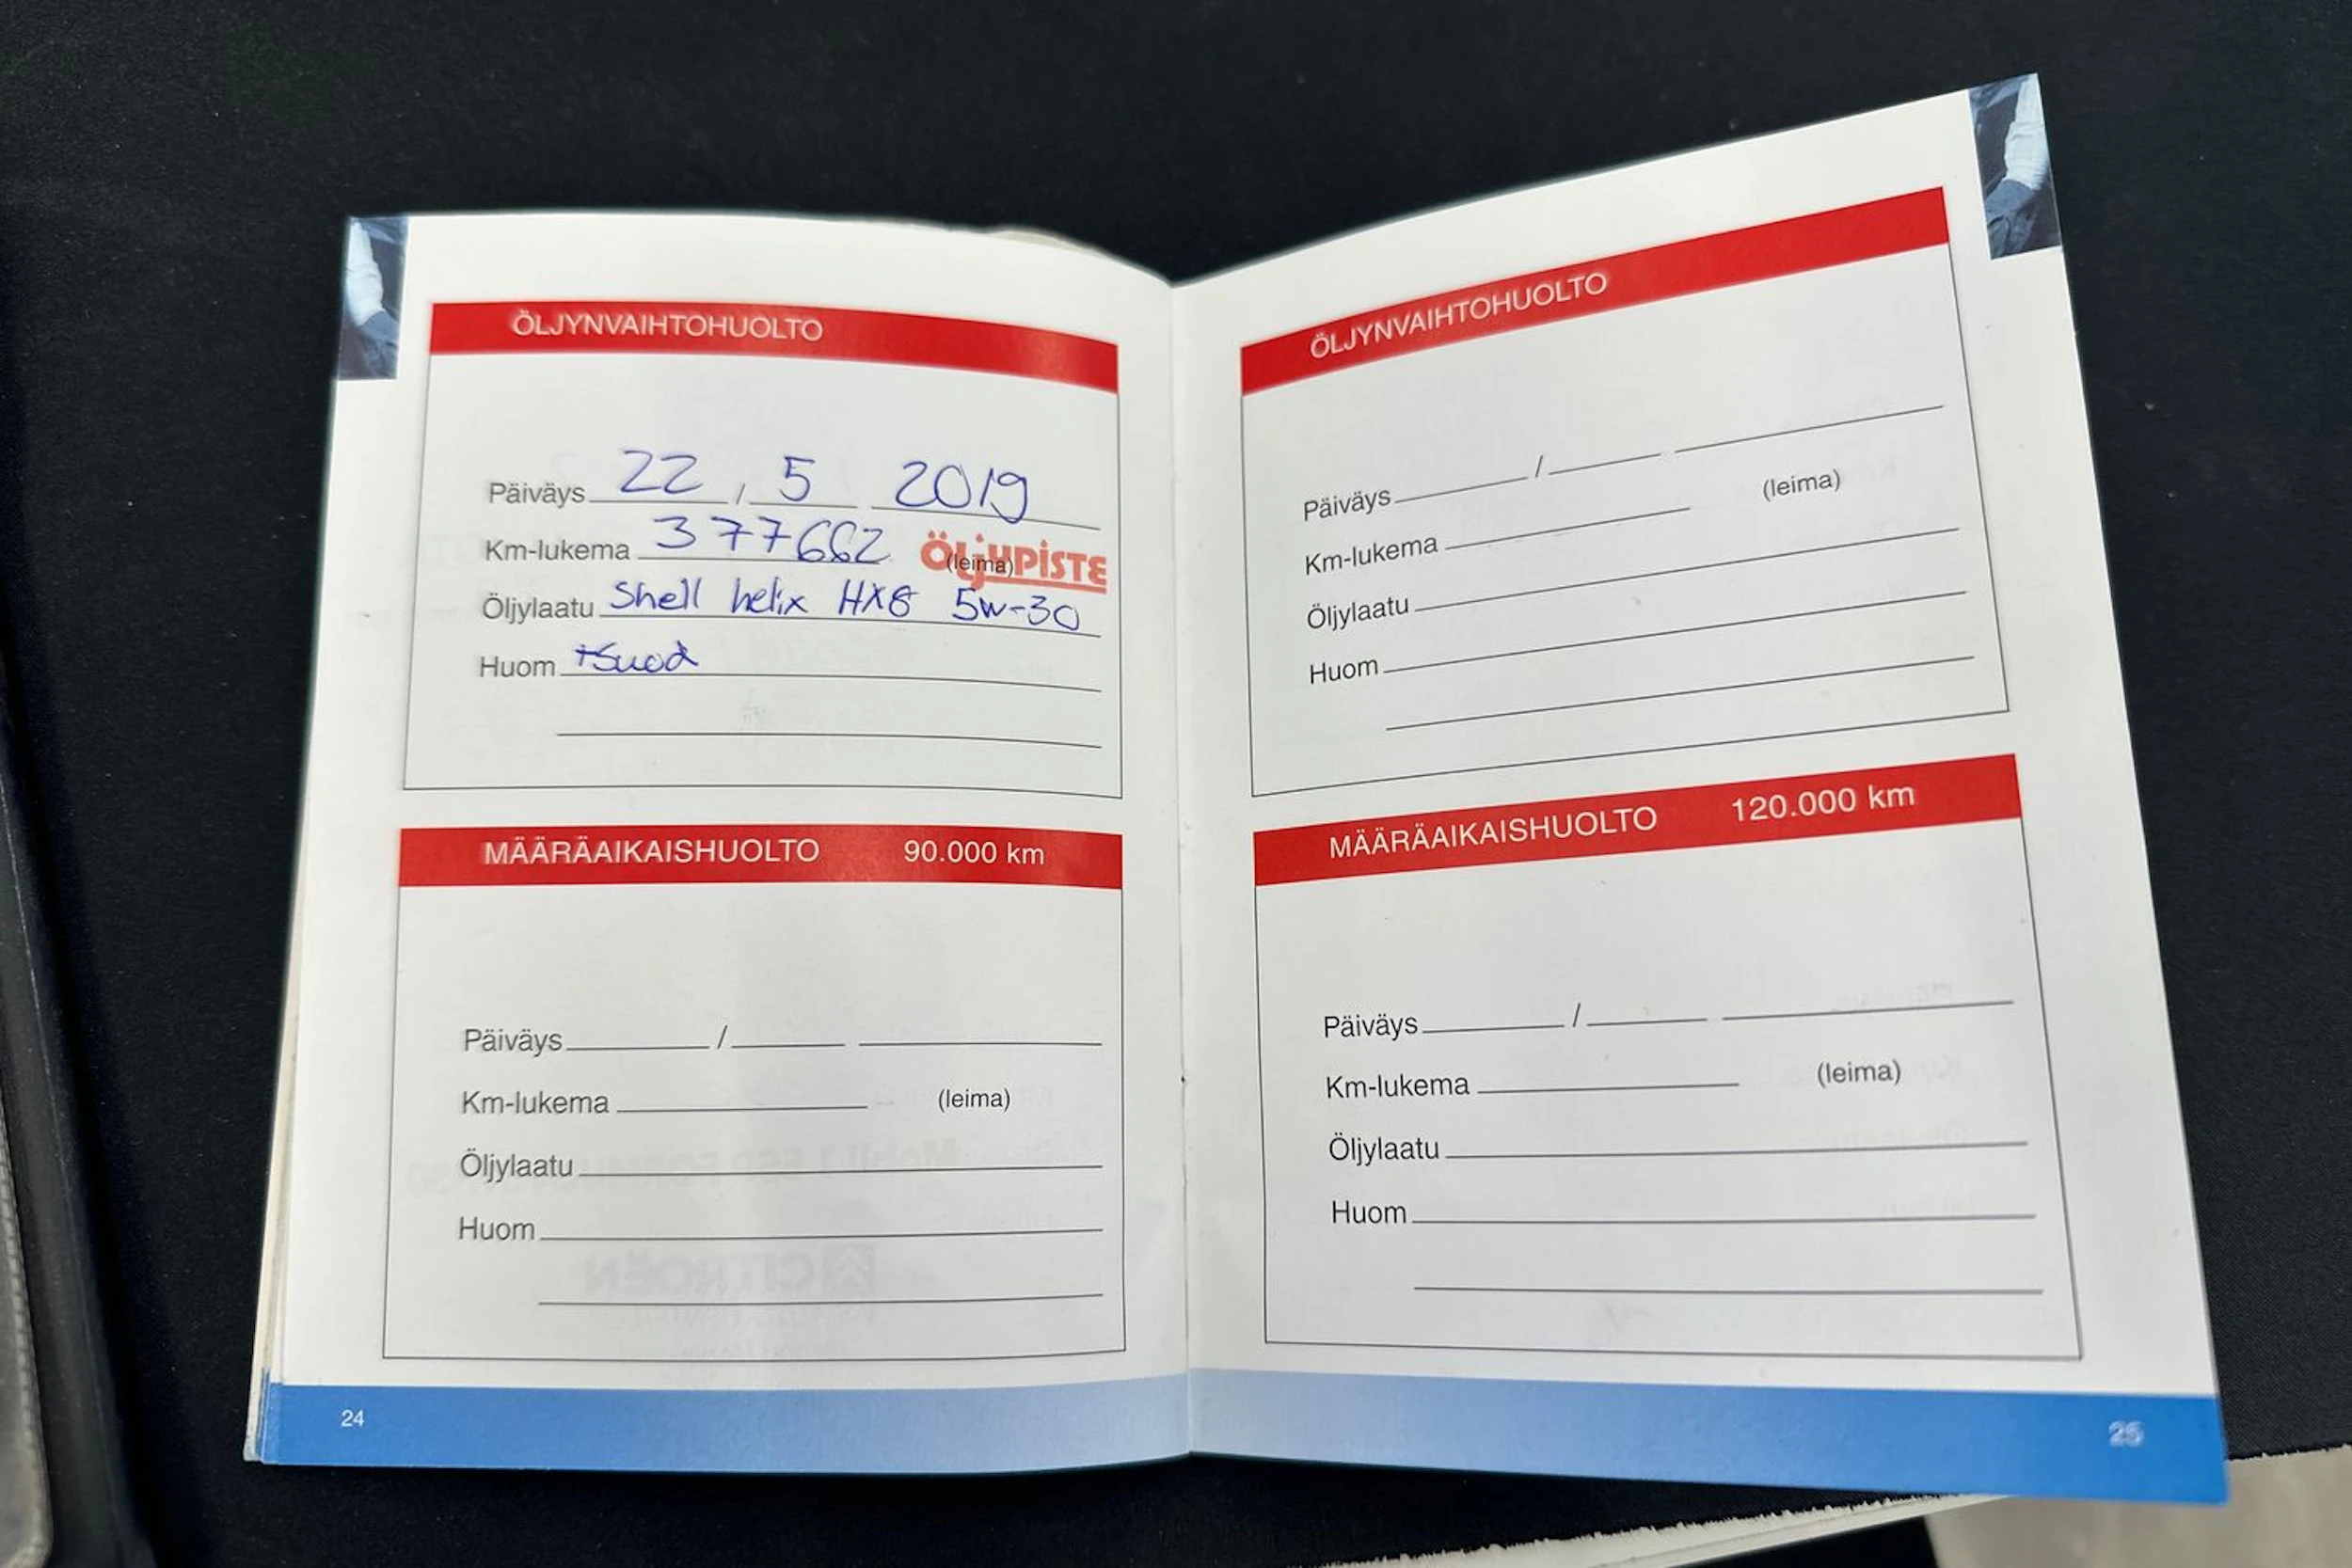 ÖLJYNVAIHTOHUOLTO
Päiväys 22 / 5 2019
Km-lukema 377662 (leima) ÖLJYPISTE
Öljylaatu Shell helix HX8 5W-30
Huom +Suod
MÄÄRÄAIKAISHUOLTO 90.000 km
Päiväys /
Km-lukema (leima)
Öljylaatu
Huom
24
ÖLJYNVAIHTOHUOLTO
Päiväys /
Km-lukema (leima)
Öljylaatu
Huom
MÄÄRÄAIKAISHUOLTO 120.000 km
Päiväys /
Km-lukema (leima)
Öljylaatu
Huom
25